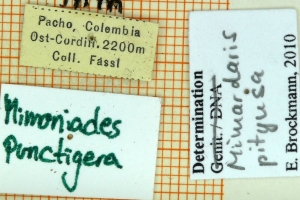 Pacho, Colombia
Ost-Cordill. 2200m
Coll. Fassl
Mimoniades
Punctigera
Determination
Genit / DNA
Mimardaris
pityusa
E. Brockmann, 2010